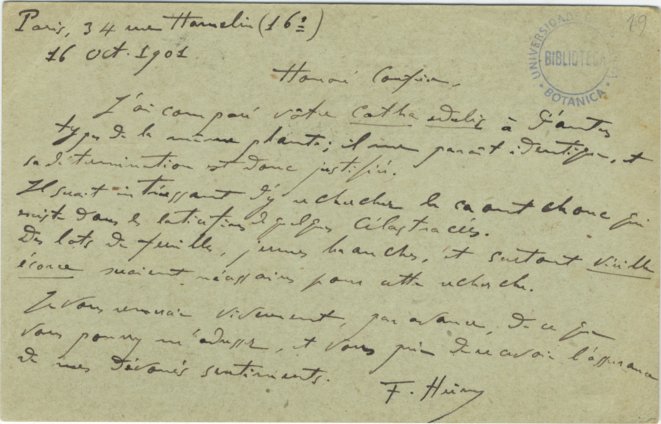 Paris, 34 rue Hamelin (16e)
16 Oct. 1901
19
UNIVERSIDAD
BIBLIOTECA
BOTANICA
Honoré Confrère,
J'ai comparé votre Catha edulis à d'autres
types de la même plante; il me paraît identique, et
sa détermination est donc justifiée.
Il serait intéressant d'y rechercher le caoutchouc qui
existe dans les laticifères de quelques Célastracées.
Des lots de feuilles, jeunes branches, et surtout vieille
écorce seraient nécessaires pour cette recherche.
Je vous remercie vivement, par avance, de ce que
vous pourrez m'adresser, et vous prie de recevoir l'assurance
de mes dévoués sentiments.
F.